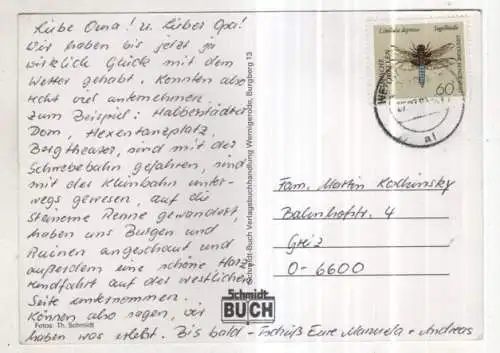 Liebe Oma! u. Lieber Opa!
Wir haben bis jetzt ja
wirklich Glück mit dem
Wetter gehabt. Konnten also
recht viel unternehmen.
Zum Beispiel: Halberstädter
Dom, Hexentanzplatz,
Bergtheater, sind mit der
Schwebebahn gefahren, sind
mit der Kleinbahn unter-
wegs gewesen, auf die
Steinerne Renne gewandert,
haben uns Burgen und
Ruinen angeschaut und
außerdem eine schöne Harz
rundfahrt auf der westlichen
Seite unternommen.
Können also sagen, wir
haben was erlebt. Bis bald - Tschüß Eure Manuela + Andreas
Fotos: Th. Schmidt
Schmidt-Buch Verlagsbuchhandlung Wernigerode, Burgberg 13
Schmidt
BUCH
Libellula depressa
Segellibelle
60
Fam. Martin
Bahnhofstr. 4
Greiz
O-6600